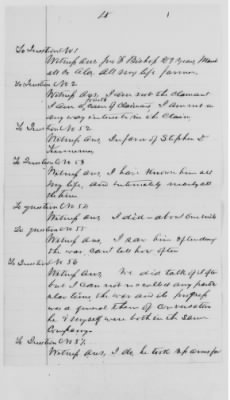 To Question No 1
Witness Ans,
all my life farmer.
To Question No 2
Witness Ans, I am not the claimant
I am a friend of Claimant, I am not in
any way interested in the Claim
To Question No 52
Witness Ans, In favor of Stephen D
To Question No 53
Witness Ans, I have known him all
my life, and intimately nearly all
the time
To question No 54
Witness Ans, I did – about one mile
To question No 55
Witness Ans, I saw him often during
the war, Can't tell how often
To Question No 56
Witness Ans, We did talk of it often
but I can not recollect any particular
time, the war and its progress
was a general theme of conversation
he & myself were both in the same
Company
To Question No 57
Witness Ans, I do, he took up arms for